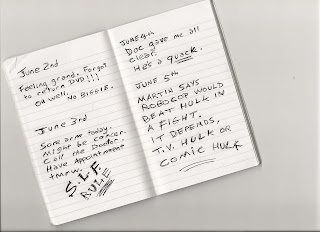 June 2nd
Feeling grand. Forgot
to return DVD!!!
Oh well. No BIGGIE.
June 3rd
Sore arm today.
Might be cancer.
Call the Doctor.
Have Appointment
tmrw.
S.L.F.
RULE
JUNE 4th
Doc gave me all
clear.
He's a quack.
JUNE 5th
MARTIN SAYS
ROBOCOP WOULD
BEAT HULK IN
A FIGHT.
IT DEPENDS,
T.V. HULK OR
COMIC HULK